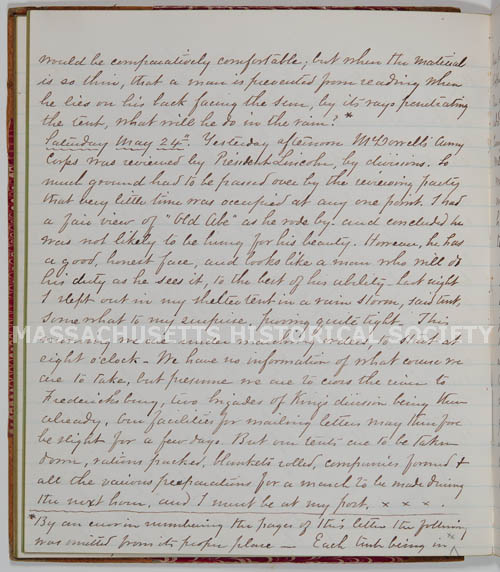 would be comparatively comfortable; but when the material
is so thin, that a man is prevented from reading when
he lies on his back facing the sun, by its rays penetrating
the tent, what will he do in the rain? *
Saturday May 24th. Yesterday afternoon McDowell's Army
Corps was reviewed by President Lincoln, by divisions. So
much ground had to be passed over by the reviewing party
that very little time was occupied at any one point. I had
a fair view of "Old Abe" as he rode by and concluded he
was not likely to be hung for his beauty. However, he has
a good, honest face, and looks like a man who will do
his duty as he sees it, to the best of his ability. Last night
I slept out in my shelter tent in a rain storm, said tent,
somewhat to my surprise, proving quite tight. This
MASSACHUSETTS HISTORICAL SOCIETY
we are under marching orders, to start at
eight o'clock - We have no information of what course we
are to take, but presume we are to cross the river to
Fredericksburg, two brigades of King's division being there
already. Our facilities for mailing letters may therefore
be slight for a few days. But our tents are to be taken
down, rations packed, blankets rolled, companies formed &
all the various preparations for a march to be made during
the next hour, and I must be at my post. x x x .
*By an error in numbering the pages of this letter the following
was omitted from its proper place — Each tent being in